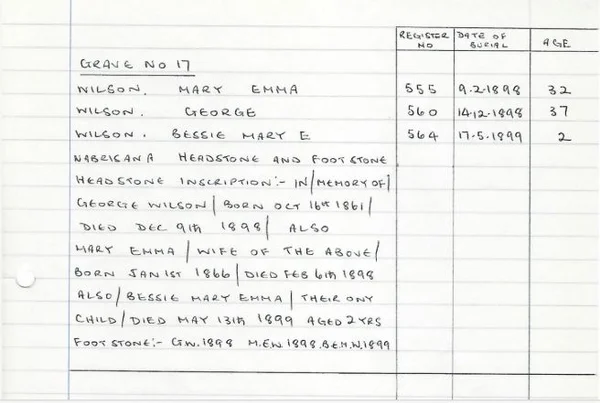 REGISTER NO DATE OF BURIAL AGE
GRAVE NO 17
WILSON. MARY EMMA 555 9.2.1898 32
WILSON. GEORGE 560 14.12.1898 37
WILSON. BESSIE MARY E 564 17.5.1899 2
NABRISANA HEADSTONE AND FOOTSTONE
HEADSTONE INSCRIPTION:- IN/MEMORY OF/
GEORGE WILSON/ BORN OCT 16th 1861/
DIED DEC 9TH 1898/ ALSO
MARY EMMA/ WIFE OF THE ABOVE/
BORN JAN 1ST 1866/ DIED FEB 6TH 1898
ALSO/ BESSIE MARY EMMA/ THEIR ONY
CHILD/ DIED MAY 13TH 1899 AGED 2 YRS
FOOTSTONE:- G.W.1898 M.E.W.1898.B.E.M.W.1899